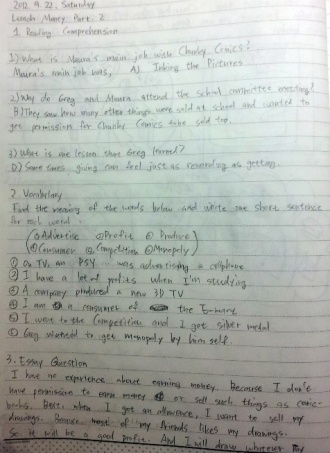 2012. 9. 22. Saturday
Lunch Money Part. 2
1. Reading Comprehension
1) What is Maura's main job with Chunky Comics?
Maura's main job was, A) Inking the Pictures
2) Why do Greg and Maura attend the school committee meeting?
B) They saw how many other things were sold at school and wanted to
get permission for Chunky Comics to be sold too.
3) What is one lesson that Greg learned?
D) Some times giving can feel just as rewarding as getting.
2. Vocabulary
Find the meaning of the words below and write one short sentence
for each word.
① Advertise ② Profit ③ Produce
④ Consumer ⑤ Competition ⑥ Monopoly
① On TV, PSY was advertising a cellphone
② I have a lot of profits when I'm studying.
③ A company produced a new 3D TV
④ I am a consumer of the E-mart
⑤ I went to the Competition and I got silver medal
⑥ Greg wanted to get monopoly by him self.
3. Essay Question
I have no experience about earning money. Because I don't
have permission to earn money or sell such things as comic-
books. But, when I get an allowance, I want to sell my
drawings. Because most of my friends likes my drawings.
So it will be a good profit. And I will draw whatever